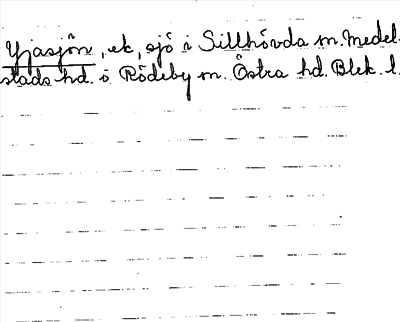 Yjasjön, ek, sjö i Sillhövda sn. Medel-
stads hd. o. Rödeby sn. Östra hd. Blek. l.